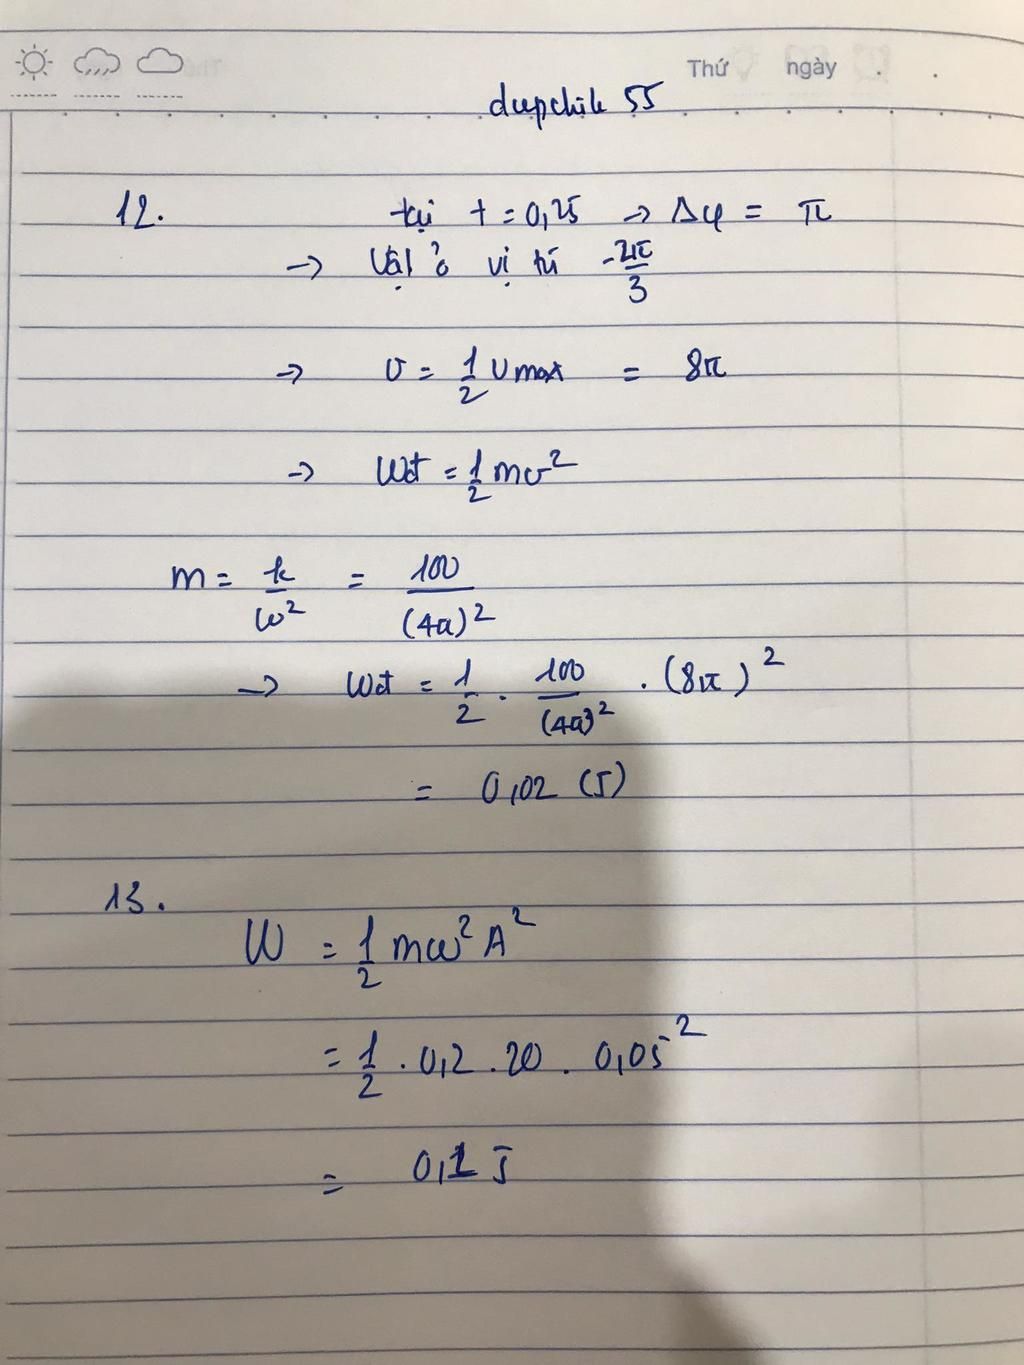 Thứ ngày
dupchik 55
12. tại t = 0,25 → Δφ = π
→ Vật ở vị trí -2π/3
→ v = 1/2 vmax = 8π
→ Wđ = 1/2 mv²
m = k/ω² = 100/(4a)²
→ Wđ = 1/2 . 100/(4a)² . (8π)²
= 0,02 (J)
13.
W = 1/2 mω²A²
= 1/2 . 0,2 . 20 . 0,05²
= 0,1 J